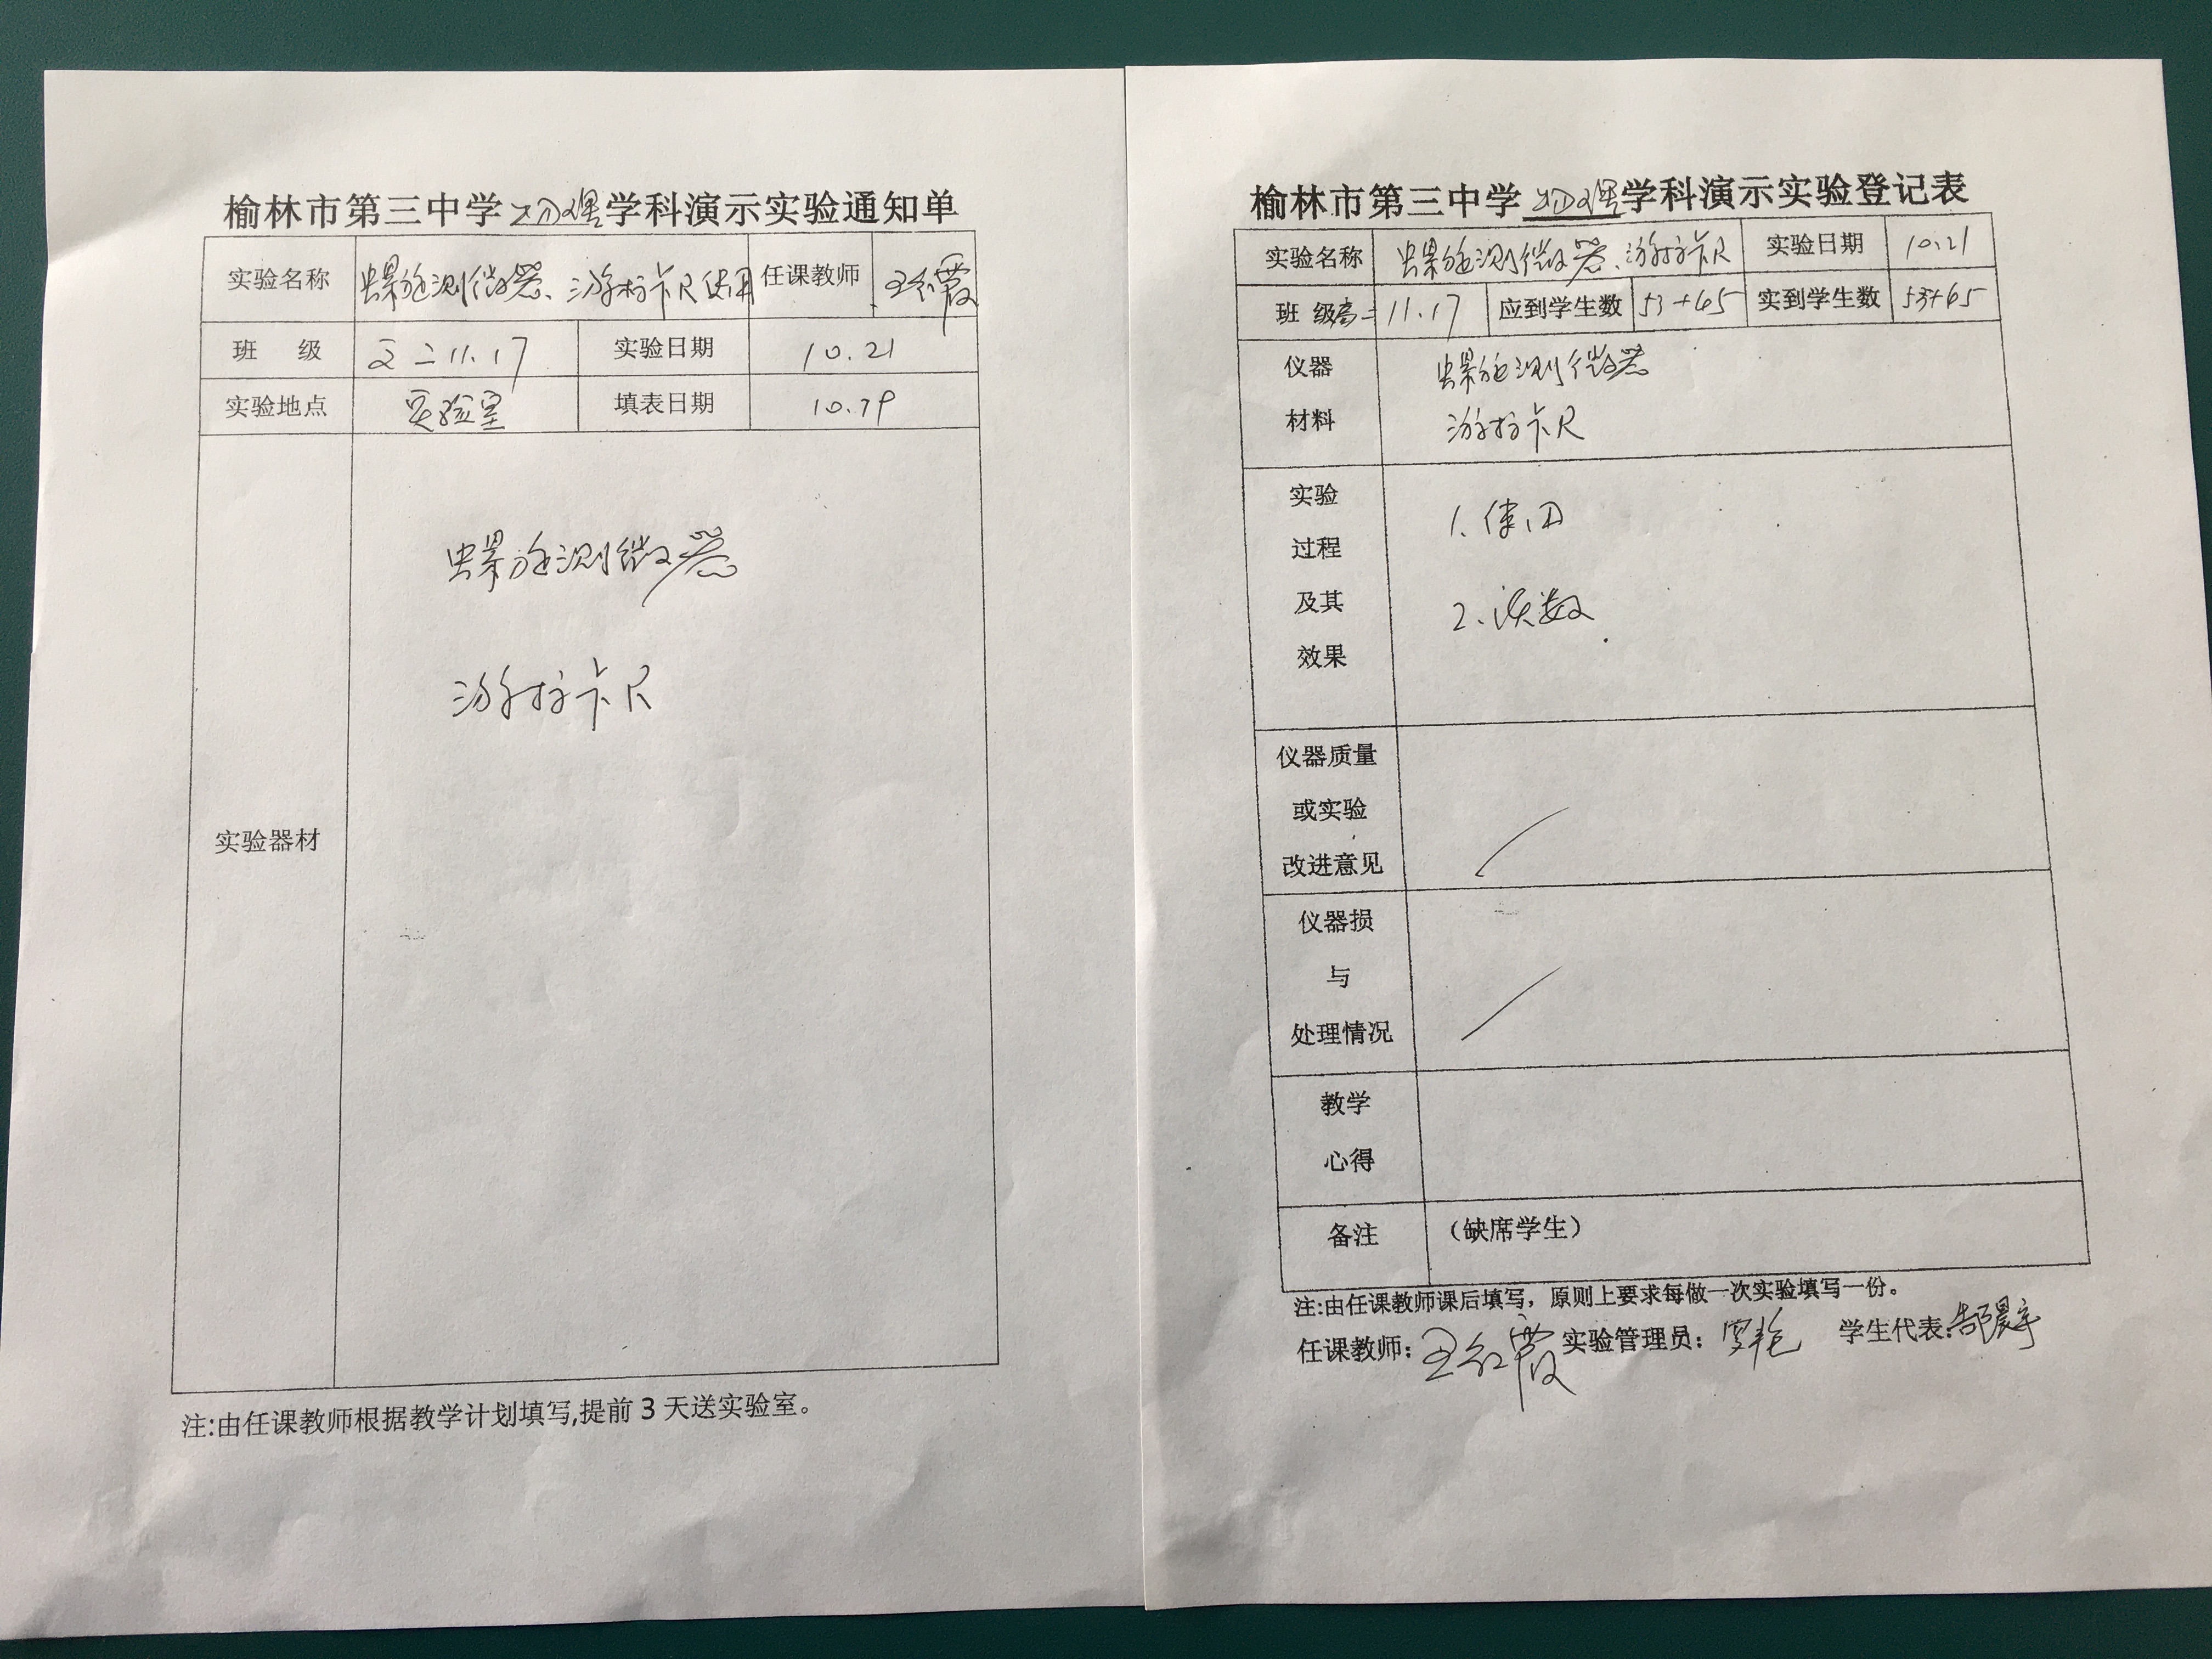 榆林市第三中学物理学科演示实验通知单
实验名称 螺旋测微器、游标卡尺使用 任课教师 王红霞
班 级 高二11.17 实验日期 10.21
实验地点 实验室 填表日期
螺旋测微器
游标卡尺
实验器材
注:由任课教师根据教学计划填写,提前3天送实验室。
榆林市第三中学物理学科演示实验登记表
实验名称 螺旋测微器、游标卡尺 实验日期 10.21
班 级高二 11.17 应到学生数 53+65 实到学生数 53+65
仪器 螺旋测微器
材料 游标卡尺
实验 1.使用
过程
及其 2.读数
效果
仪器质量
或实验
改进意见
仪器损
与
处理情况
教学
心得
备注 (缺席学生)
注:由任课教师课后填写，原则上要求每做一次实验填写一份。
任课教师: 王红霞 实验管理员: 学生代表: